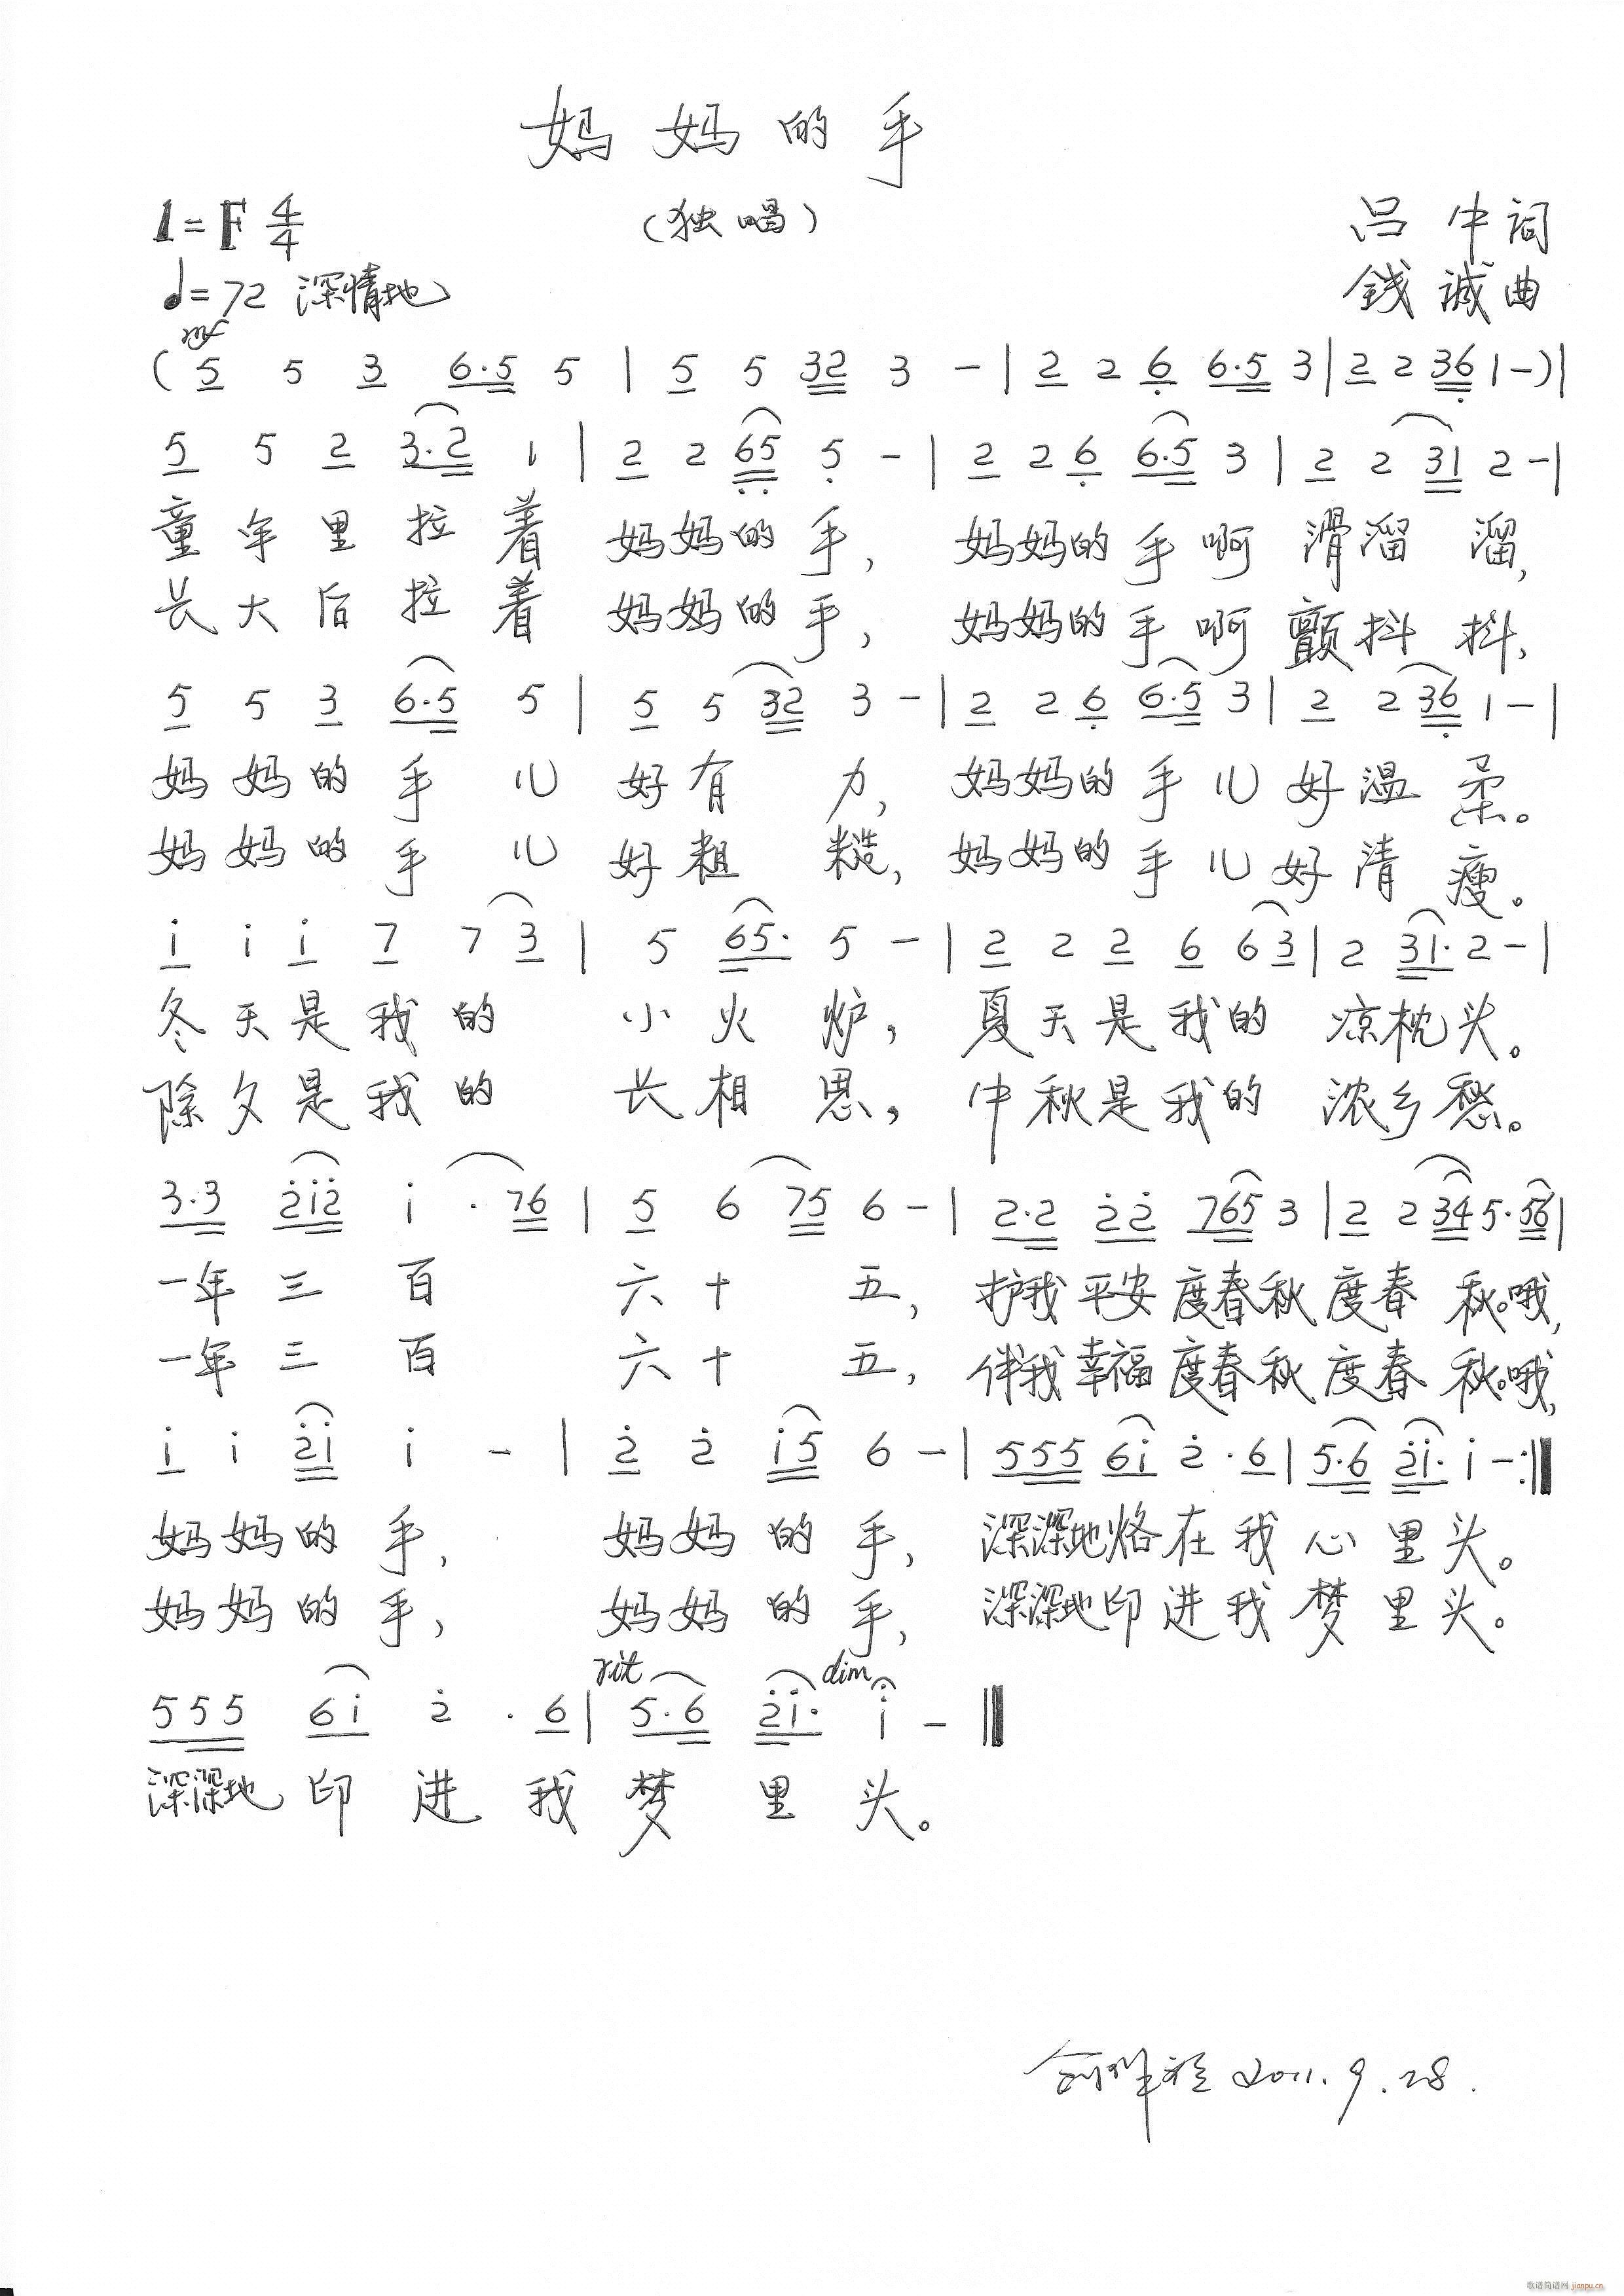 妈妈的手
1=F 4/4 (独唱) 吕中词
♩=72 深情地 钱诚曲
mf
(5 5 3 6·5 5 | 5 5 32 3 - | 2 2 6 6·5 3 | 2 2 36 1 -) |
5 5 2 3·2 1 | 2 2 65 5 - | 2 2 6 6·5 3 | 2 2 31 2 - |
童年里拉着 妈妈的手, 妈妈的手啊 滑溜溜,
长大后拉着 妈妈的手, 妈妈的手啊 颤抖抖,
5 5 3 6·5 5 | 5 5 32 3 - | 2 2 6 6·5 3 | 2 2 36 1 - |
妈妈的手儿 好有力, 妈妈的手儿 好温柔。
妈妈的手儿 好粗糙, 妈妈的手儿 好清瘦。
i i i 7 7 3 | 5 65· 5 - | 2 2 2 6 6 3 | 2 31· 2 - |
冬天是我的 小火炉, 夏天是我的 凉枕头。
除夕是我的 长相思, 中秋是我的 浓乡愁。
3·3 2i2 i · 76 | 5 6 75 6 - | 2·2 22 765 3 | 2 2 34 5·56 |
一年三百 六十五, 护我平安度春秋度春秋。哦,
一年三百 六十五, 伴我幸福度春秋度春秋。哦,
i i 2i i - | 2 2 i5 6 - | 555 6i 2·6 | 5·6 2i· i - :‖
妈妈的手, 妈妈的手, 深深地烙在我心里头。
妈妈的手, 妈妈的手, 深深地印进我梦里头。
rit dim
555 6i 2 · 6 | 5·6 2i· i - ‖
深深地印进我梦里头。
2011.9.28.
歌谱简谱网 jianpu.cn